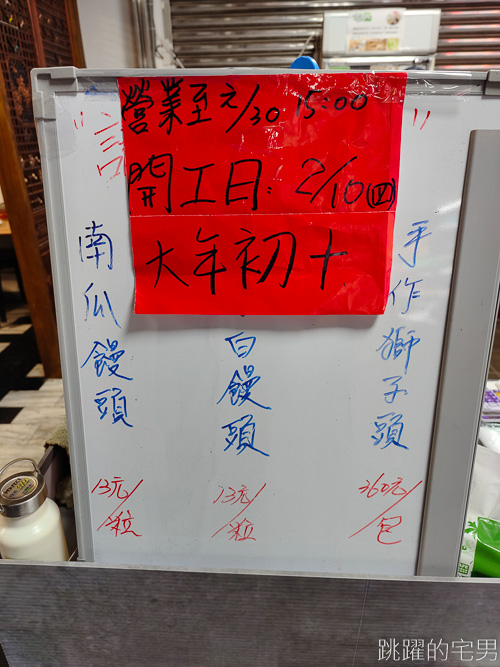 營業至元/30 15:00
開工日：2/10(四)
大年初十
手作獅子頭
360元/包
白饅頭
13元/粒
南瓜饅頭
13元/粒
跳躍的宅男